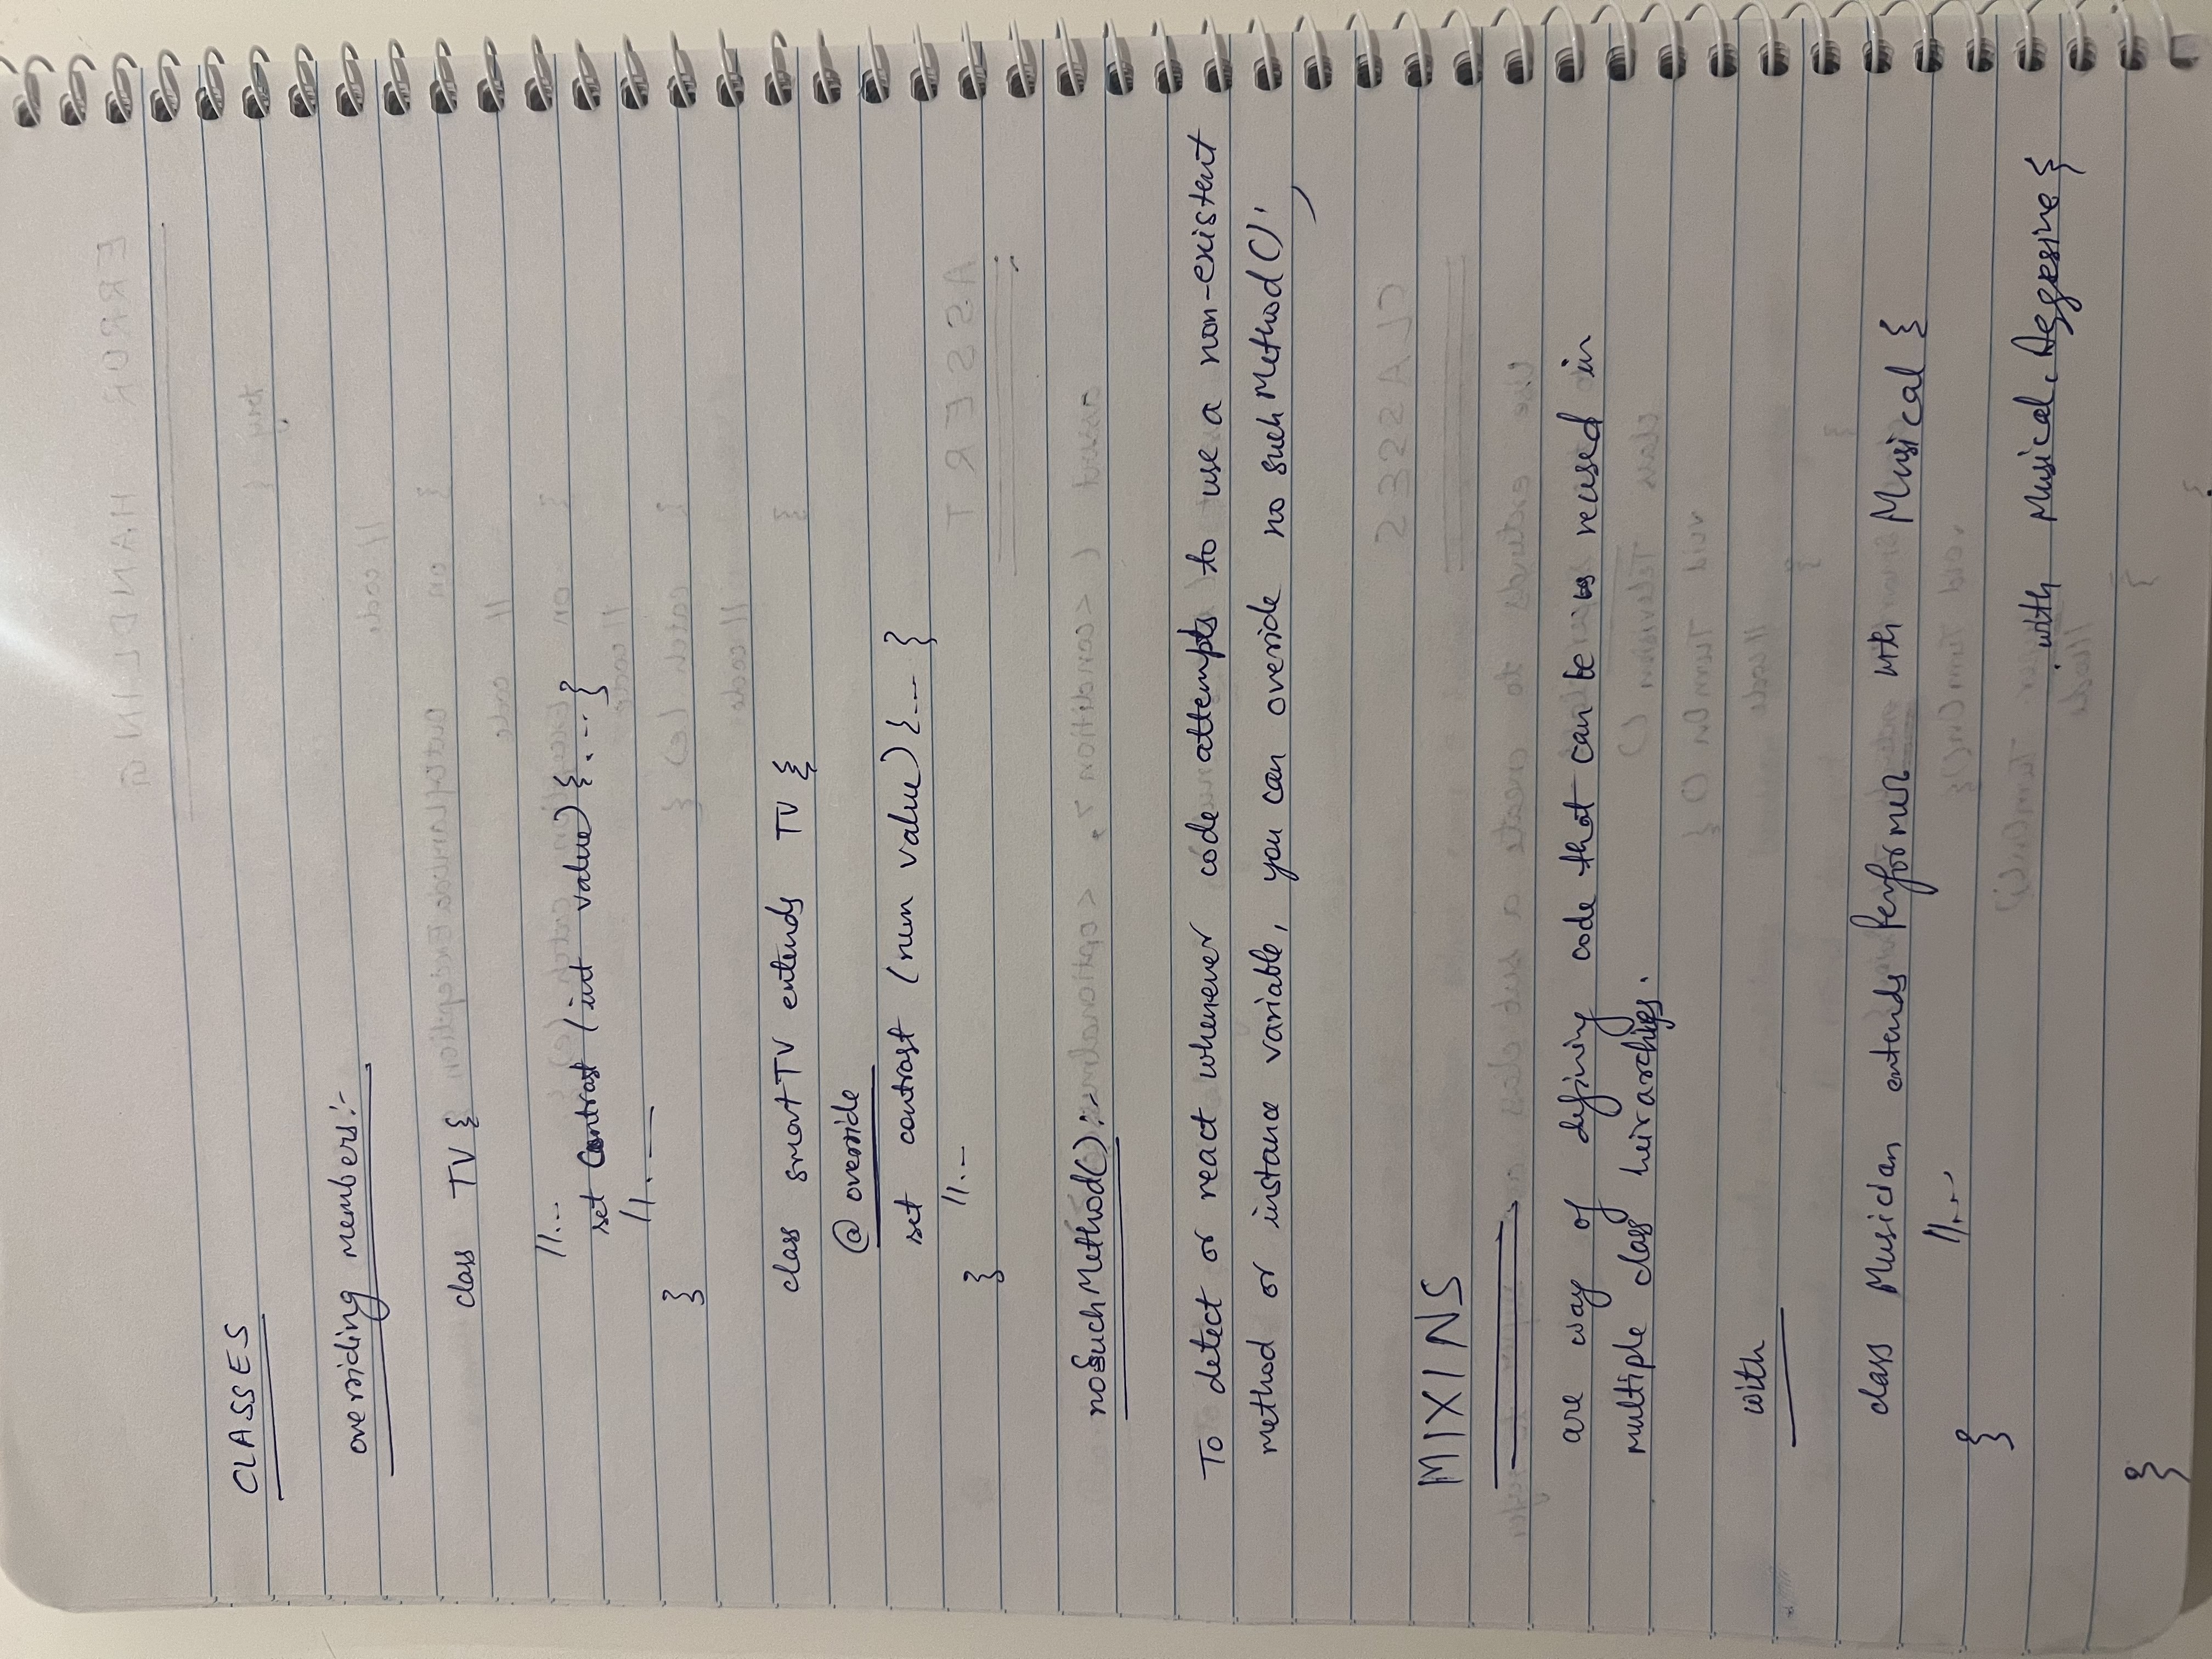 CLASSES
overriding members:-
class TV {
//...
set Contrast (int value) {...}
//. __
}
class smartTV extends TV {
@override
set contrast (num value) {... }
//...
}
noSuchMethod() :-
To detect or react whenever code attempts to use a non-existent
method or instance variable, you can override no such Method();
MIXINS
are way of defining code that can be reused in
multiple class heirarchies.
with
class Musician extends Performer with Musical {
//...
}
with Musical, Aggresive {
}